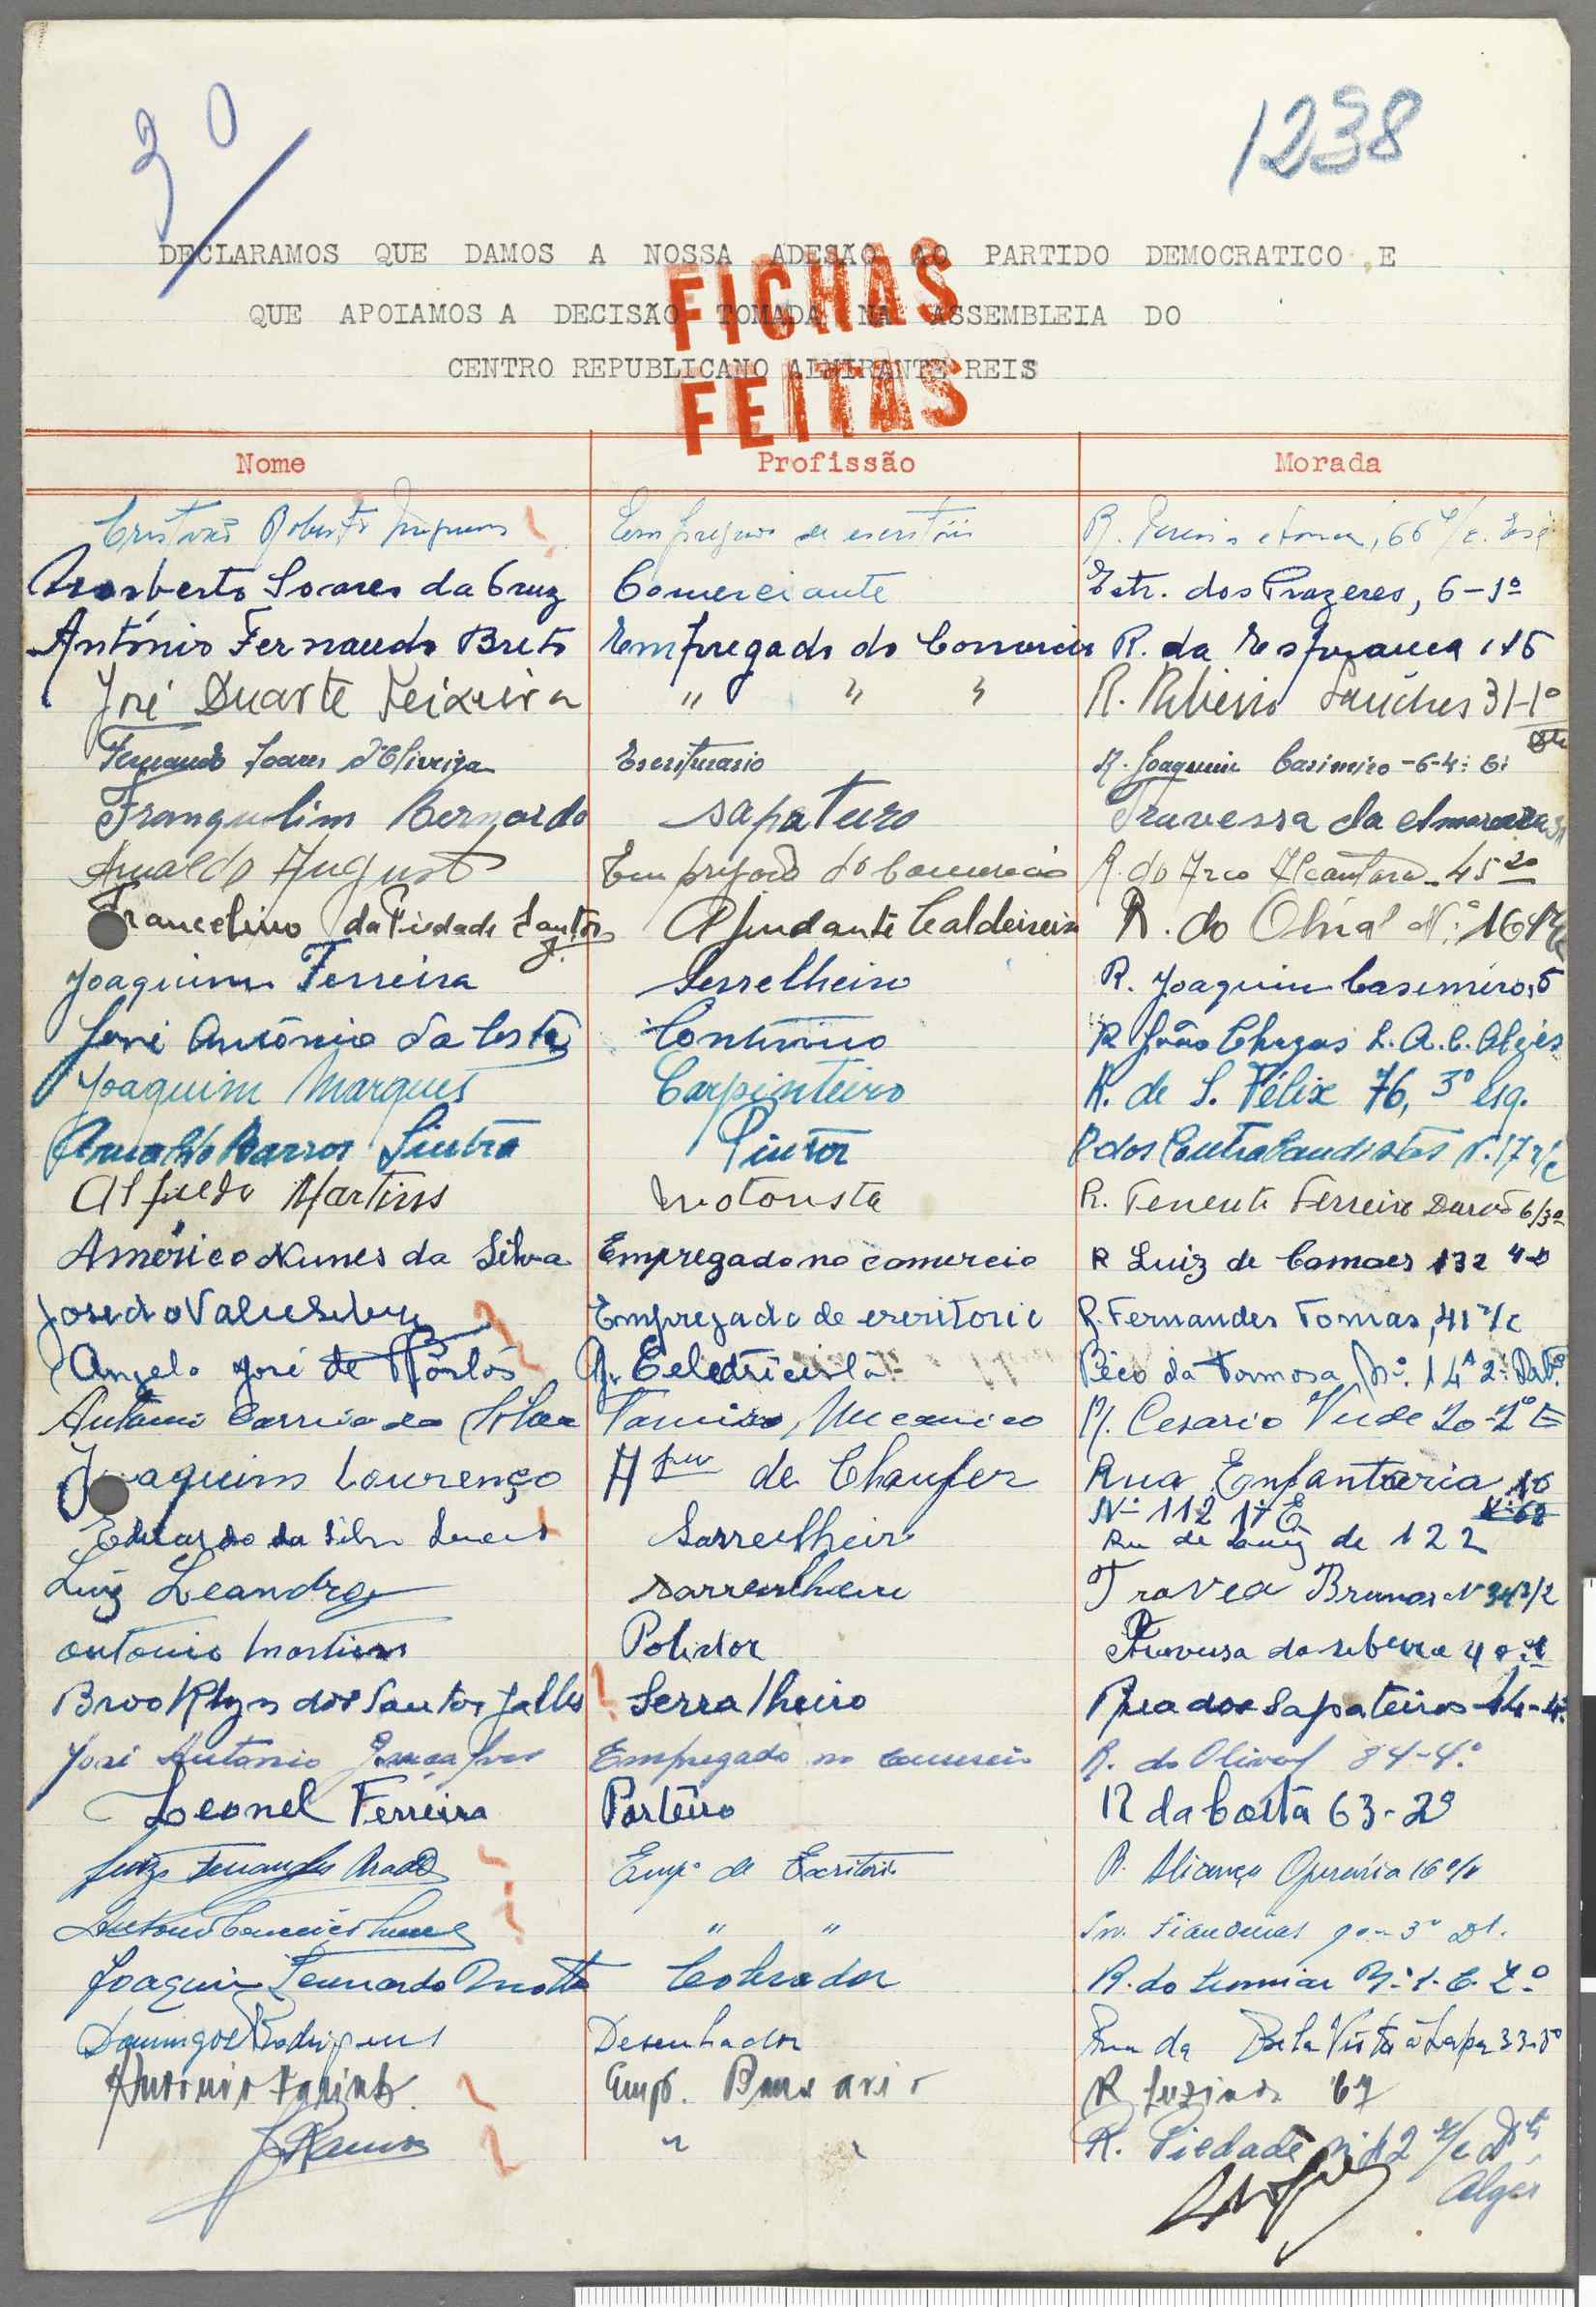 30
1238
DECLARAMOS QUE DAMOS A NOSSA ADESÃO AO PARTIDO DEMOCRATICO E
QUE APOIAMOS A DECISÃO TOMADA NA ASSEMBLEIA DO
CENTRO REPUBLICANO ALMIRANTE REIS
FICHAS
FEITAS
Nome Profissão Morada
Cristovão Roberto Empregado de escritório R. 66 r/c. Esq
Norberto Soares da Cruz Comerciante Estr. dos Prazeres, 6-1º
António Fernando Brito Empregado do Comercio R. da Esperança 116
José Duarte Teixeira " " " R. Ribeiro Sanches 31-1º
Fernando Soares d'Oliveira Escriturario R. Joaquim Casimiro-6-4º E:
Franquelim Bernardo sapateiro Travessa da
Arnaldo Augusto Empregado do Comercio R. do Arco Alcantara-45 2º
Francelino da Piedade Santos Ajudante Caldeireiro R. do Olival Nº 164
Joaquim Ferreira Serrelheiro R. Joaquim Casemiro, 5
José António da Costa Continuo R João Chagas L.A.C. Algés
Joaquim Marques Carpinteiro R. de S. Félix 76, 3º esq.
Arnaldo Barros Sintra Pintor R dos Contrabandistas N. 17 r/c
Alfredo Martins Motorista R. Tenente Ferreira Durão 6/3º
Américo Nunes da Silva Empregado no comercio R Luiz de Camoes 132 4-D
José do Vale Empregado de escritorio R. Fernandes Tomas, 41 r/c
Angelo José de Eeledricista Béco da Formosa Nº. 14 2º
Antonio Correia da Silva Mecanico R. Cesario Verde 20-2º E
Joaquim Lourenço de Chaufer Rua Enfantaria 16
Nº 112 1º E
Eduardo da Silva Sarrelheiro de 122
Luiz Leandro sarrelheiro
Antonio Martins Polidor Travessa da
Brooklyn dos Santos Serralheiro Rua dos Sapateiros
José António Empregado no comercio R. do Olival 84-4º
Leonel Ferreira Porteiro R da Costa 63-2º
Fernandes Empº de Escritorio R. Aliança Operária 16
António " " 3º Dt.
Joaquim Fernando Motta Cobrador R. do
Domingos Rodrigues Desenhador Rua da Bela Vista á Lapa 33-3º
António Emp. Bancario R 67
Ramos " " R. Piedade r/c Dtº
Algés